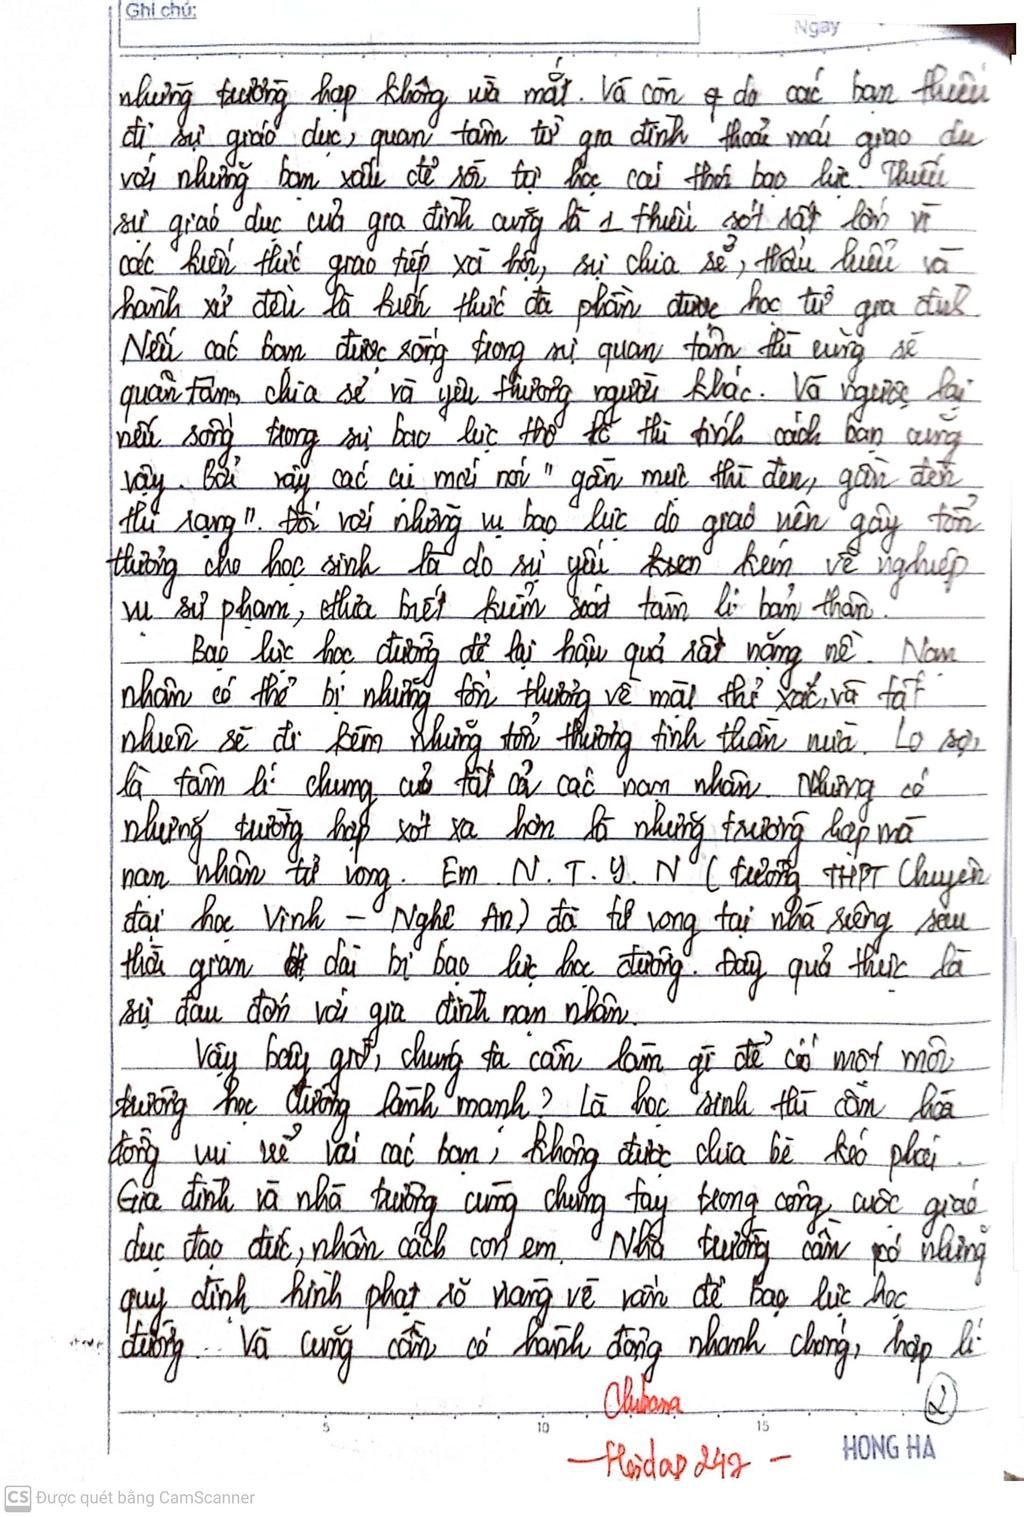 Ghi chú:
Ngày
những trường hợp không vừa mắt. Và còn do các bạn thiếu
đi sự giáo dục, quan tâm từ gia đình thoải mái giao du
với những bạn xấu để rồi tự học cái thói bạo lực. Thiếu
sự giáo dục của gia đình cũng là 1 thiếu sót rất lớn vì
các kiến thức giao tiếp xã hội, sự chia sẻ, thấu hiểu và
hành xử đều là kiến thức đa phần được học từ gia đình.
Nếu các bạn được sống trong sự quan tâm thì cũng sẽ
quan tâm, chia sẻ và yêu thương người khác. Và ngược lại
nếu sống trong sự bạo lực thô lỗ thì tính cách bạn cũng
vậy. Bởi vậy các cụ mới nói "gần mực thì đen, gần đèn
thì rạng". Đối với những vụ bạo lực do giáo viên gây tổn
thương cho học sinh là do sự yếu kém về nghiệp
vụ sư phạm, chưa biết kiểm soát tâm lí bản thân.
Bạo lực học đường để lại hậu quả rất nặng nề. Nạn
nhân có thể bị những tổn thương về mặt thể xác, và tất
nhiên sẽ đi kèm những tổn thương tinh thần nữa. Lo sợ,
là tâm lí chung của tất cả các nạn nhân. Nhưng có
những trường hợp xót xa hơn là những trường hợp mà
nạn nhân tử vong. Em N.T.Y.N (trường THPT Chuyên
đại học Vinh - Nghệ An) đã tử vong tại nhà riêng sau
thời gian dài bị bạo lực học đường. Đây quả thực là
sự đau đớn với gia đình nạn nhân.
Vậy bây giờ, chúng ta cần làm gì để có một môi
trường học đường lành mạnh? Là học sinh thì cần hòa
đồng vui vẻ với các bạn, không được chia bè kéo phái.
Gia đình và nhà trường cùng chung tay trong công cuộc giáo
dục đạo đức, nhân cách con em. Nhà trường cần có những
quy định hình phạt rõ ràng về vấn đề bạo lực học
đường. Và cũng cần có hành động nhanh chóng, hợp lí
5 10 15
2
- Hoidap247 -
HONG HA
CS Được quét bằng CamScanner